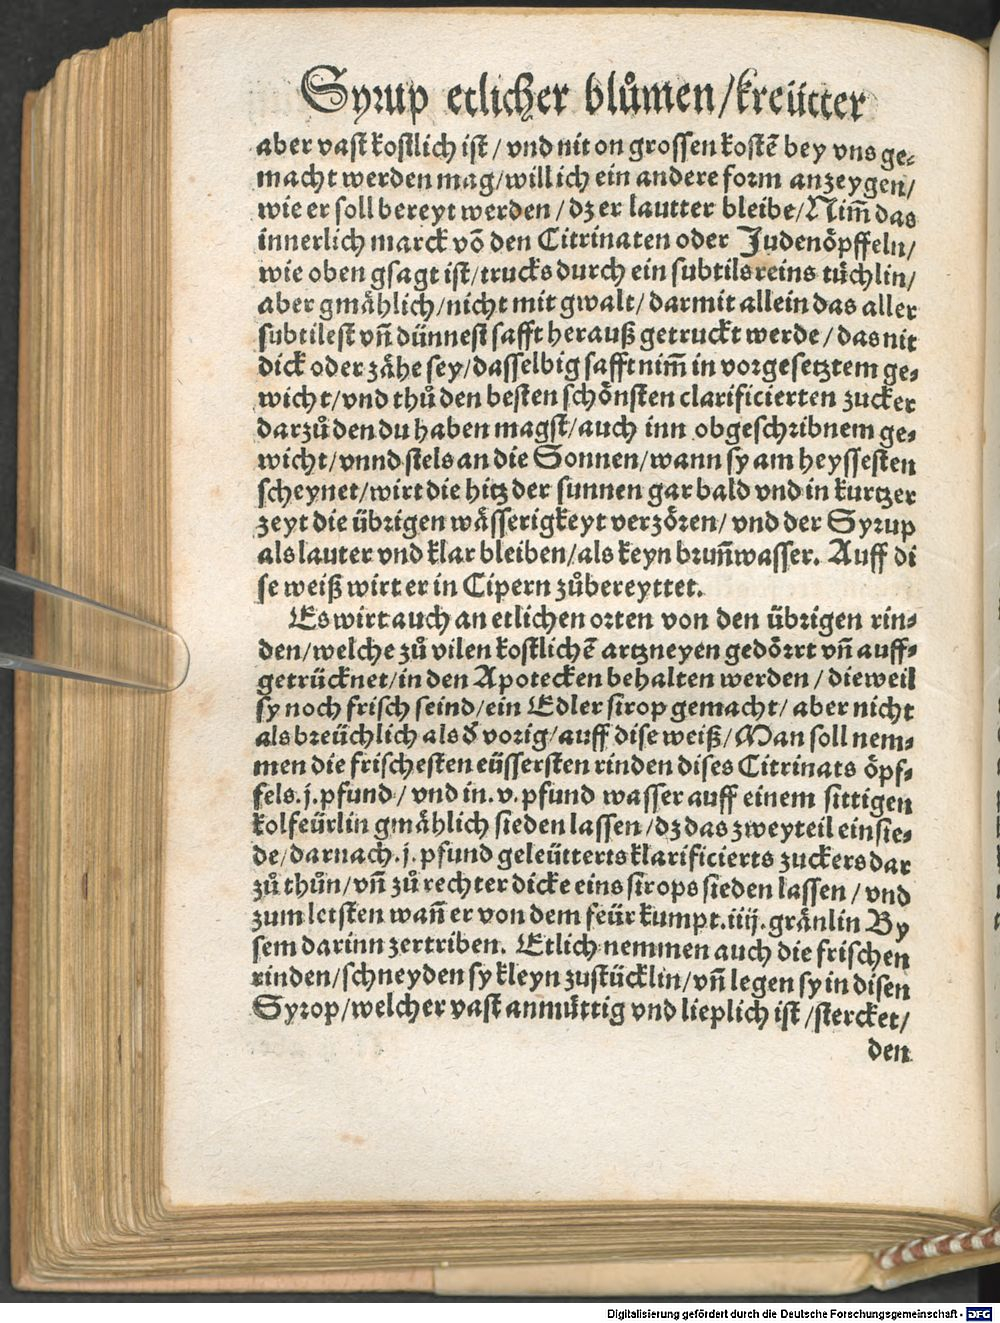 Syrup etlicher blůmen/kreütter
aber vast kostlich ist/ vnd nit on grossen kostẽ bey vns ge⸗
macht werden mag/will ich ein andere form anzeygen/
wie er soll bereyt werden/ dz er lautter bleibe/Nim̃ das
innerlich marck võ den Citrinaten oder Judenöpffeln/
wie oben gsagt ist/trucks durch ein subtils reins tüchlin/
aber gmählich/nicht mit gwalt/ darmit allein das aller
subtilest vñ dünnest safft herauß getruckt werde/ das nit
dick oder zähe sey/dasselbig safft nim̃ in vorgesetztem ge⸗
wicht/vnd thů den besten schönsten clarificierten zucker
darzů den du haben magst/auch inn obgeschribnem ge⸗
wicht/vnnd stels an die Sonnen/wann sy am heyssesten
scheynet/wirt die hitz der sunnen gar bald vnd in kurtzer
zeyt die übrigen wässerigkeyt verzören/ vnd der Syrup
als lauter vnd klar bleiben/als keyn brun̄wasser. Auff di
se weiß wirt er in Cipern zůbereyttet.
Es wirt auch an etlichen orten von den übrigen rin⸗
den/welche zů vilen kostlichẽ artzneyen gedörrt vñ auff⸗
getrücknet/in den Apotecken behalten werden/ dieweil
sy noch frisch seind/ein Edler sirop gemacht/ aber nicht
als breüchlich als ð vorig/auff dise weiß/Man soll nem⸗
men die frischesten eüssersten rinden dises Citrinats öpf⸗
fels.j.pfund/ vnd in.v.pfund wasser auff einem sittigen
kolfeürlin gmählich sieden lassen/dz das zweyteil einsie⸗
de/darnach.j.pfund geleütterts klarificierts zuckers dar
zů thůn/vñ zů rechter dicke eins sirops sieden lassen/ vnd
zum letsten wañ er von dem feür kumpt.iiij.gränlin By
sem darinn zertriben. Etlich nemmen auch die frischen
rinden/schneyden sy kleyn zustücklin/vñ legen sy in disen
Syrop/welcher vast anmüttig vnd lieplich ist/stercket/
den
Digitalisierung gefördert durch die Deutsche Forschungsgemeinschaft - DFG